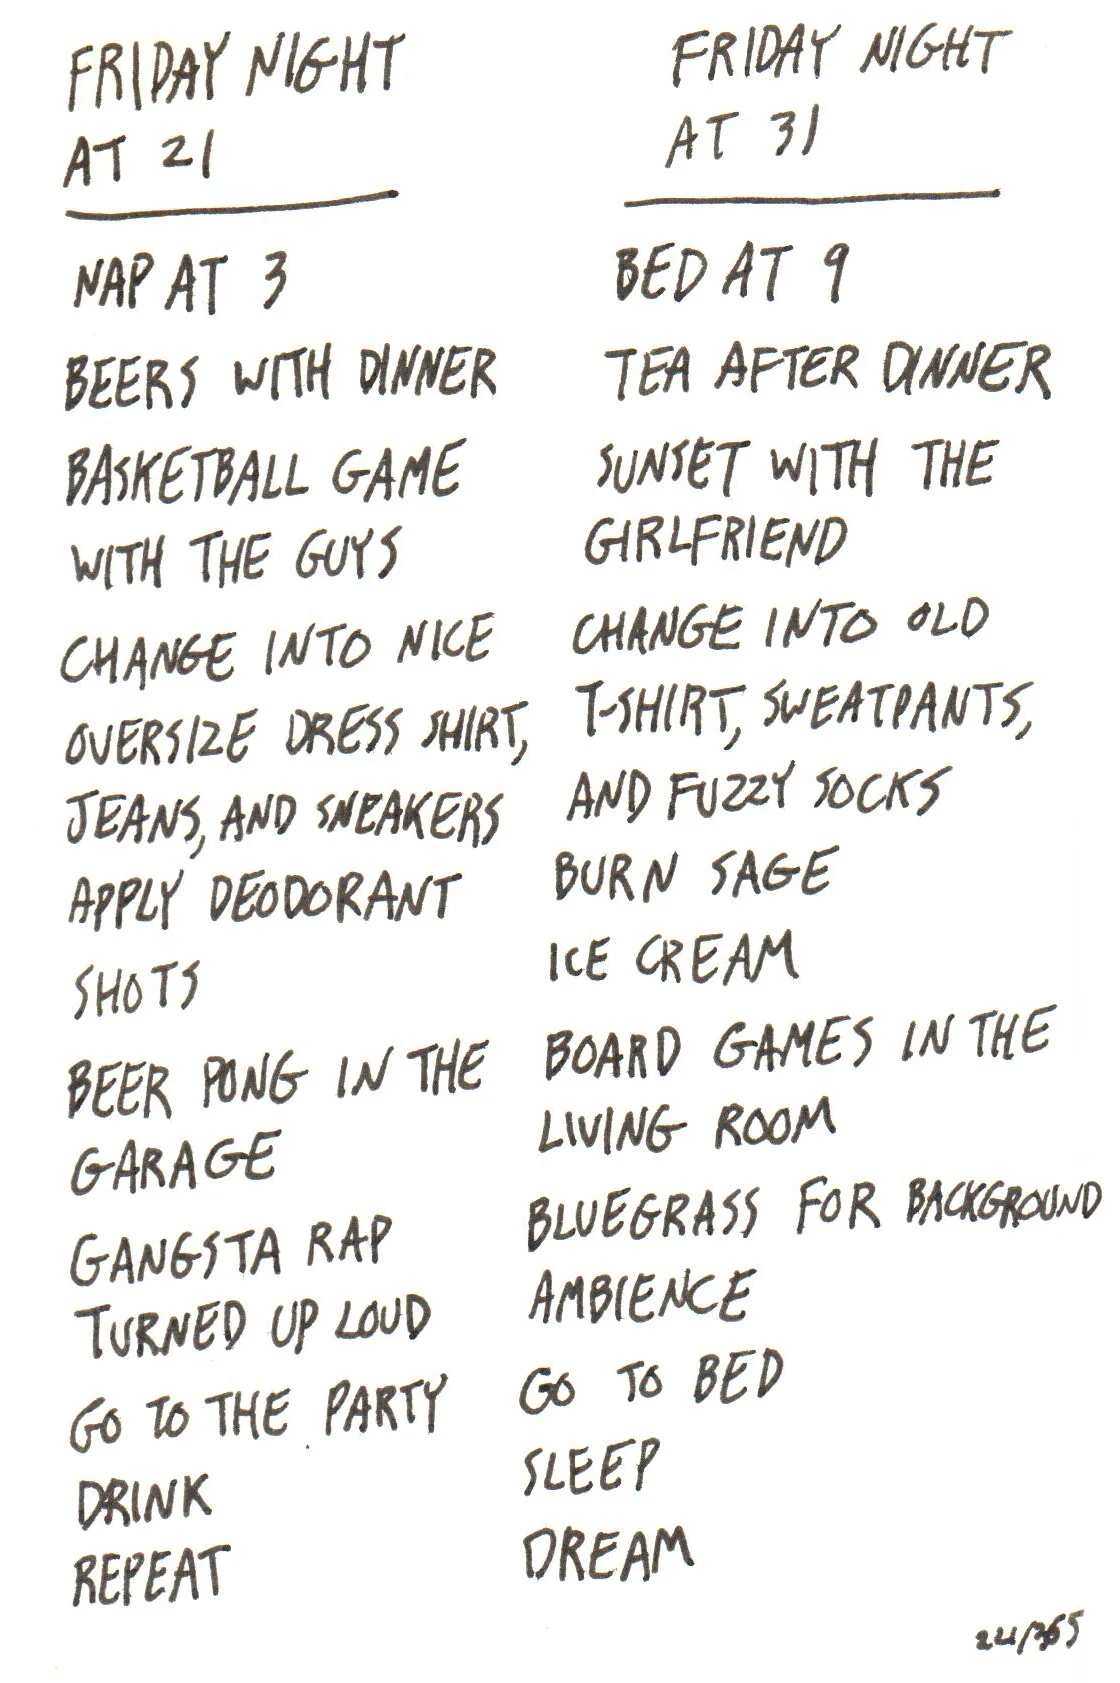 FRIDAY NIGHT
AT 21
NAP AT 3
BEERS WITH DINNER
BASKETBALL GAME
WITH THE GUYS
CHANGE INTO NICE
OVERSIZE DRESS SHIRT,
JEANS, AND SNEAKERS
APPLY DEODORANT
SHOTS
BEER PONG IN THE
GARAGE
GANGSTA RAP
TURNED UP LOUD
GO TO THE PARTY
DRINK
REPEAT
FRIDAY NIGHT
AT 31
BED AT 9
TEA AFTER DINNER
SUNSET WITH THE
GIRLFRIEND
CHANGE INTO OLD
T-SHIRT, SWEATPANTS,
AND FUZZY SOCKS
BURN SAGE
ICE CREAM
BOARD GAMES IN THE
LIVING ROOM
BLUEGRASS FOR BACKGROUND
AMBIENCE
GO TO BED
SLEEP
DREAM